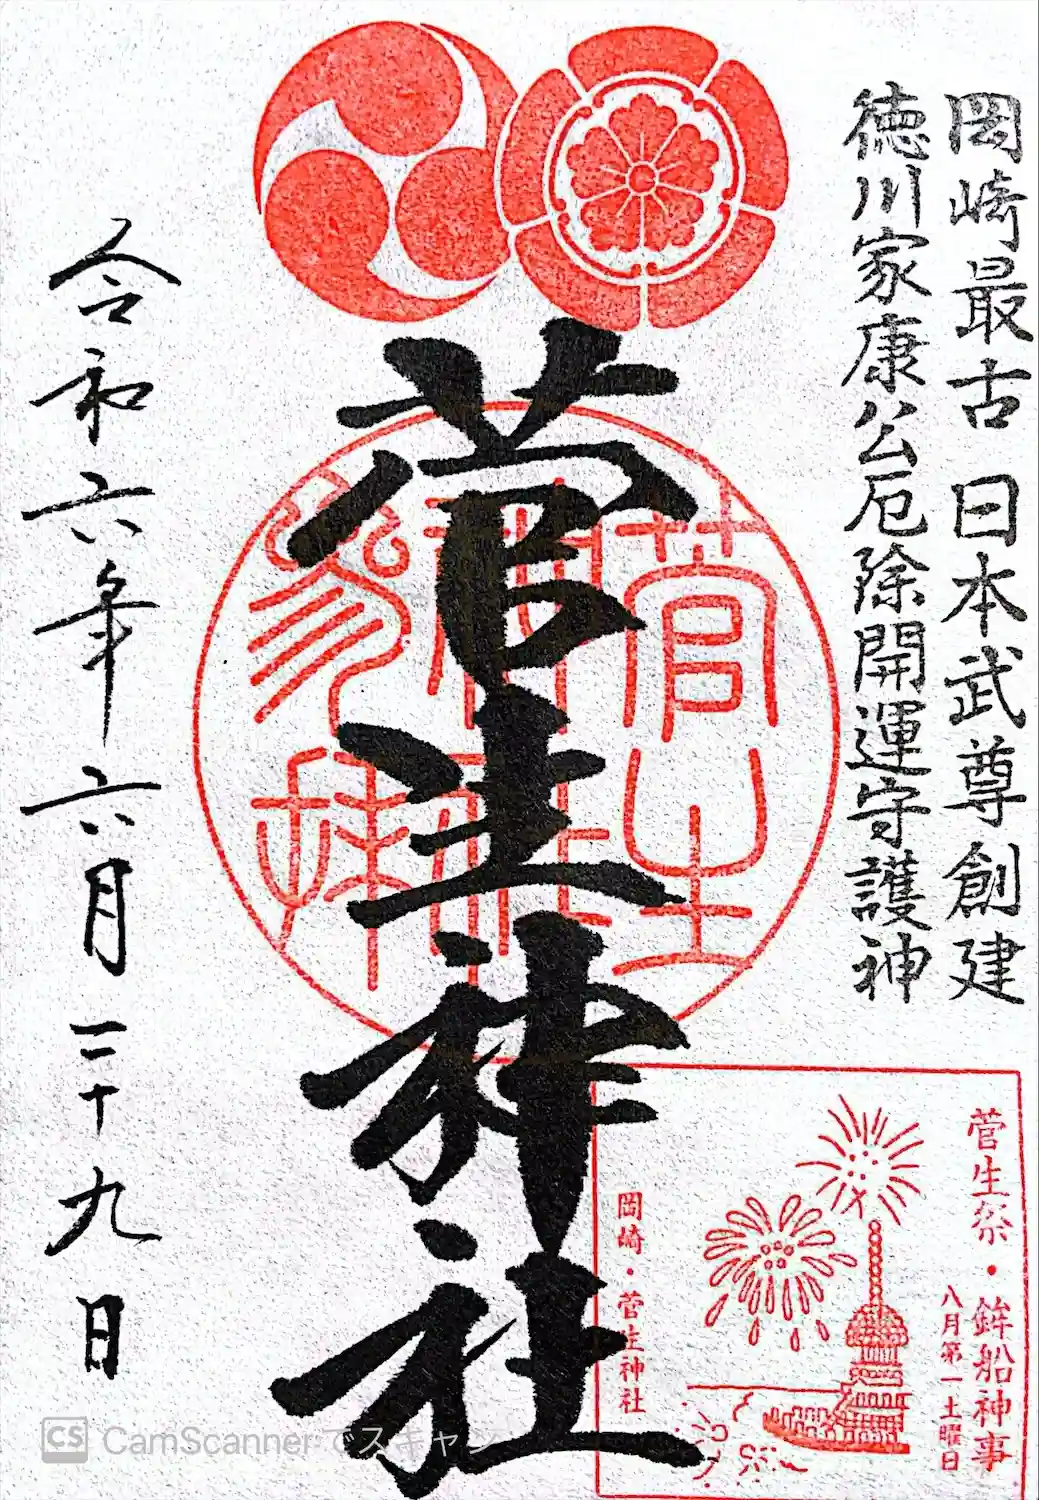 岡崎最古 日本武尊創建
徳川家康公厄除開運守護神
菅生神社
菅生神社参拝
令和六年六月二十九日
菅生祭・鉾船神事
八月第一土曜日
岡崎・菅生神社
CS CamScannerでスキャン